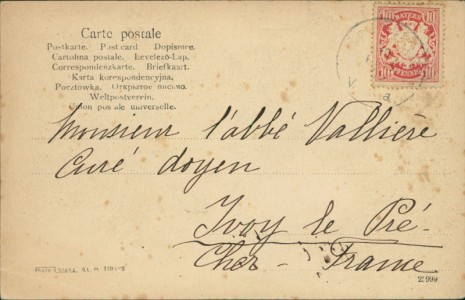 Carte postale
Postkarte. Postcard Dopisnice.
Cartolina postale. Levelező-Lap.
Correspondenzkarte. Briefkaart.
Karta korespondencyjna.
Pocztówka. Открытое письмо.
Weltpostverein.
Union postale universelle.
10 BAYERN 10
10 PFENNIG 10
Monsieur l'abbé Vallière
Curé doyen
Ivoy le Pré
Cher - France
23999